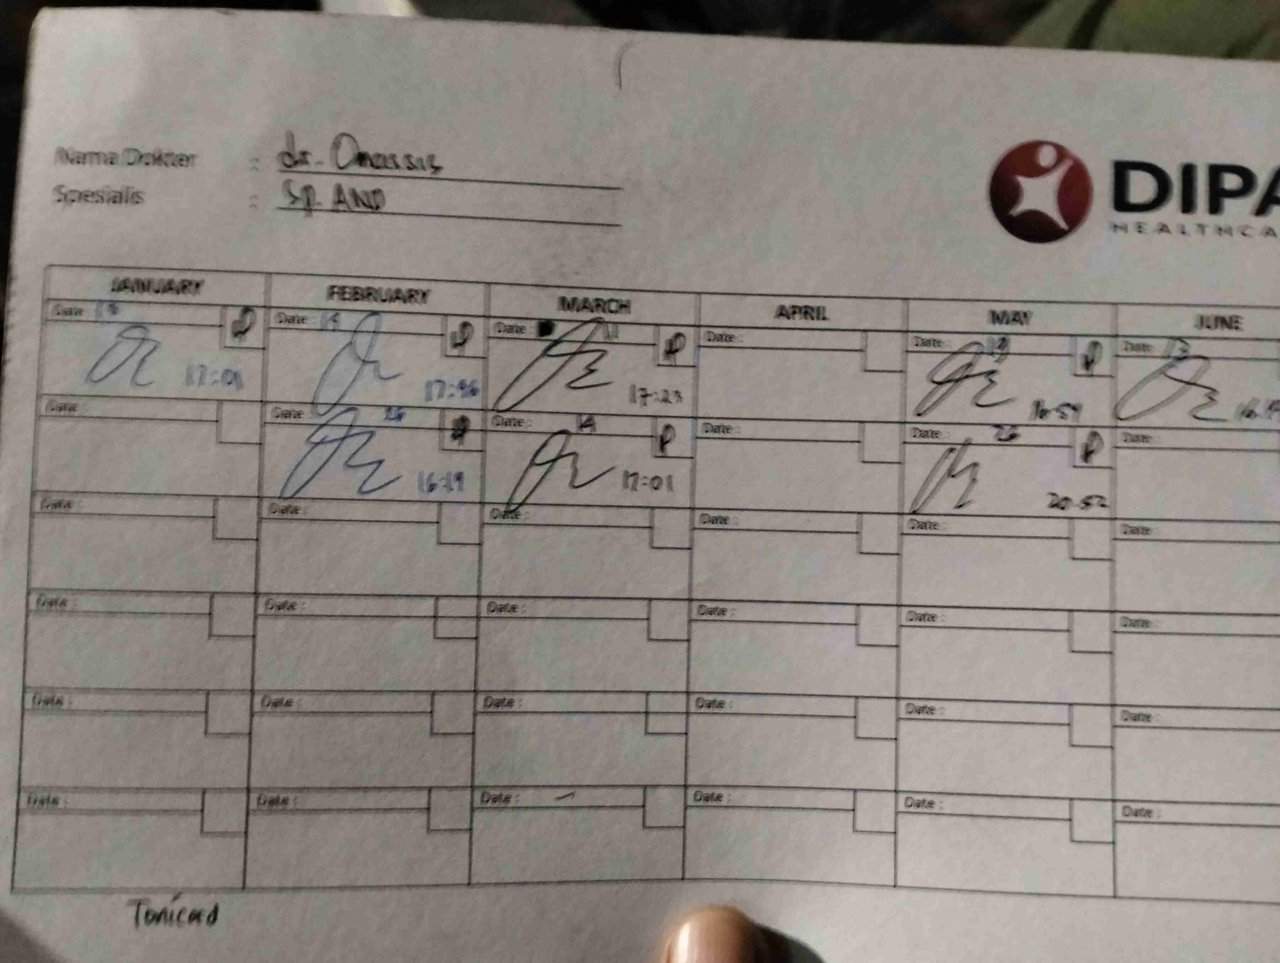 Nama Dokter : dr. Onassis
Spesialis : Sp. AND
DIPA
HEALTHCA
JANUARY FEBRUARY MARCH APRIL MAY JUNE
Date : Date : Date : 11 Date : Date : 19 Date : 13
17:01 17:23 16:59
Date : Date : 26 Date : 14 Date : Date : 26 Date :
16:19 17:01 20:52
Date : Date : Date : Date : Date : Date :
Date : Date : Date : Date : Date : Date :
Date : Date : Date : Date : Date : Date :
Date : Date : Date : Date : Date : Date :
Tonicard